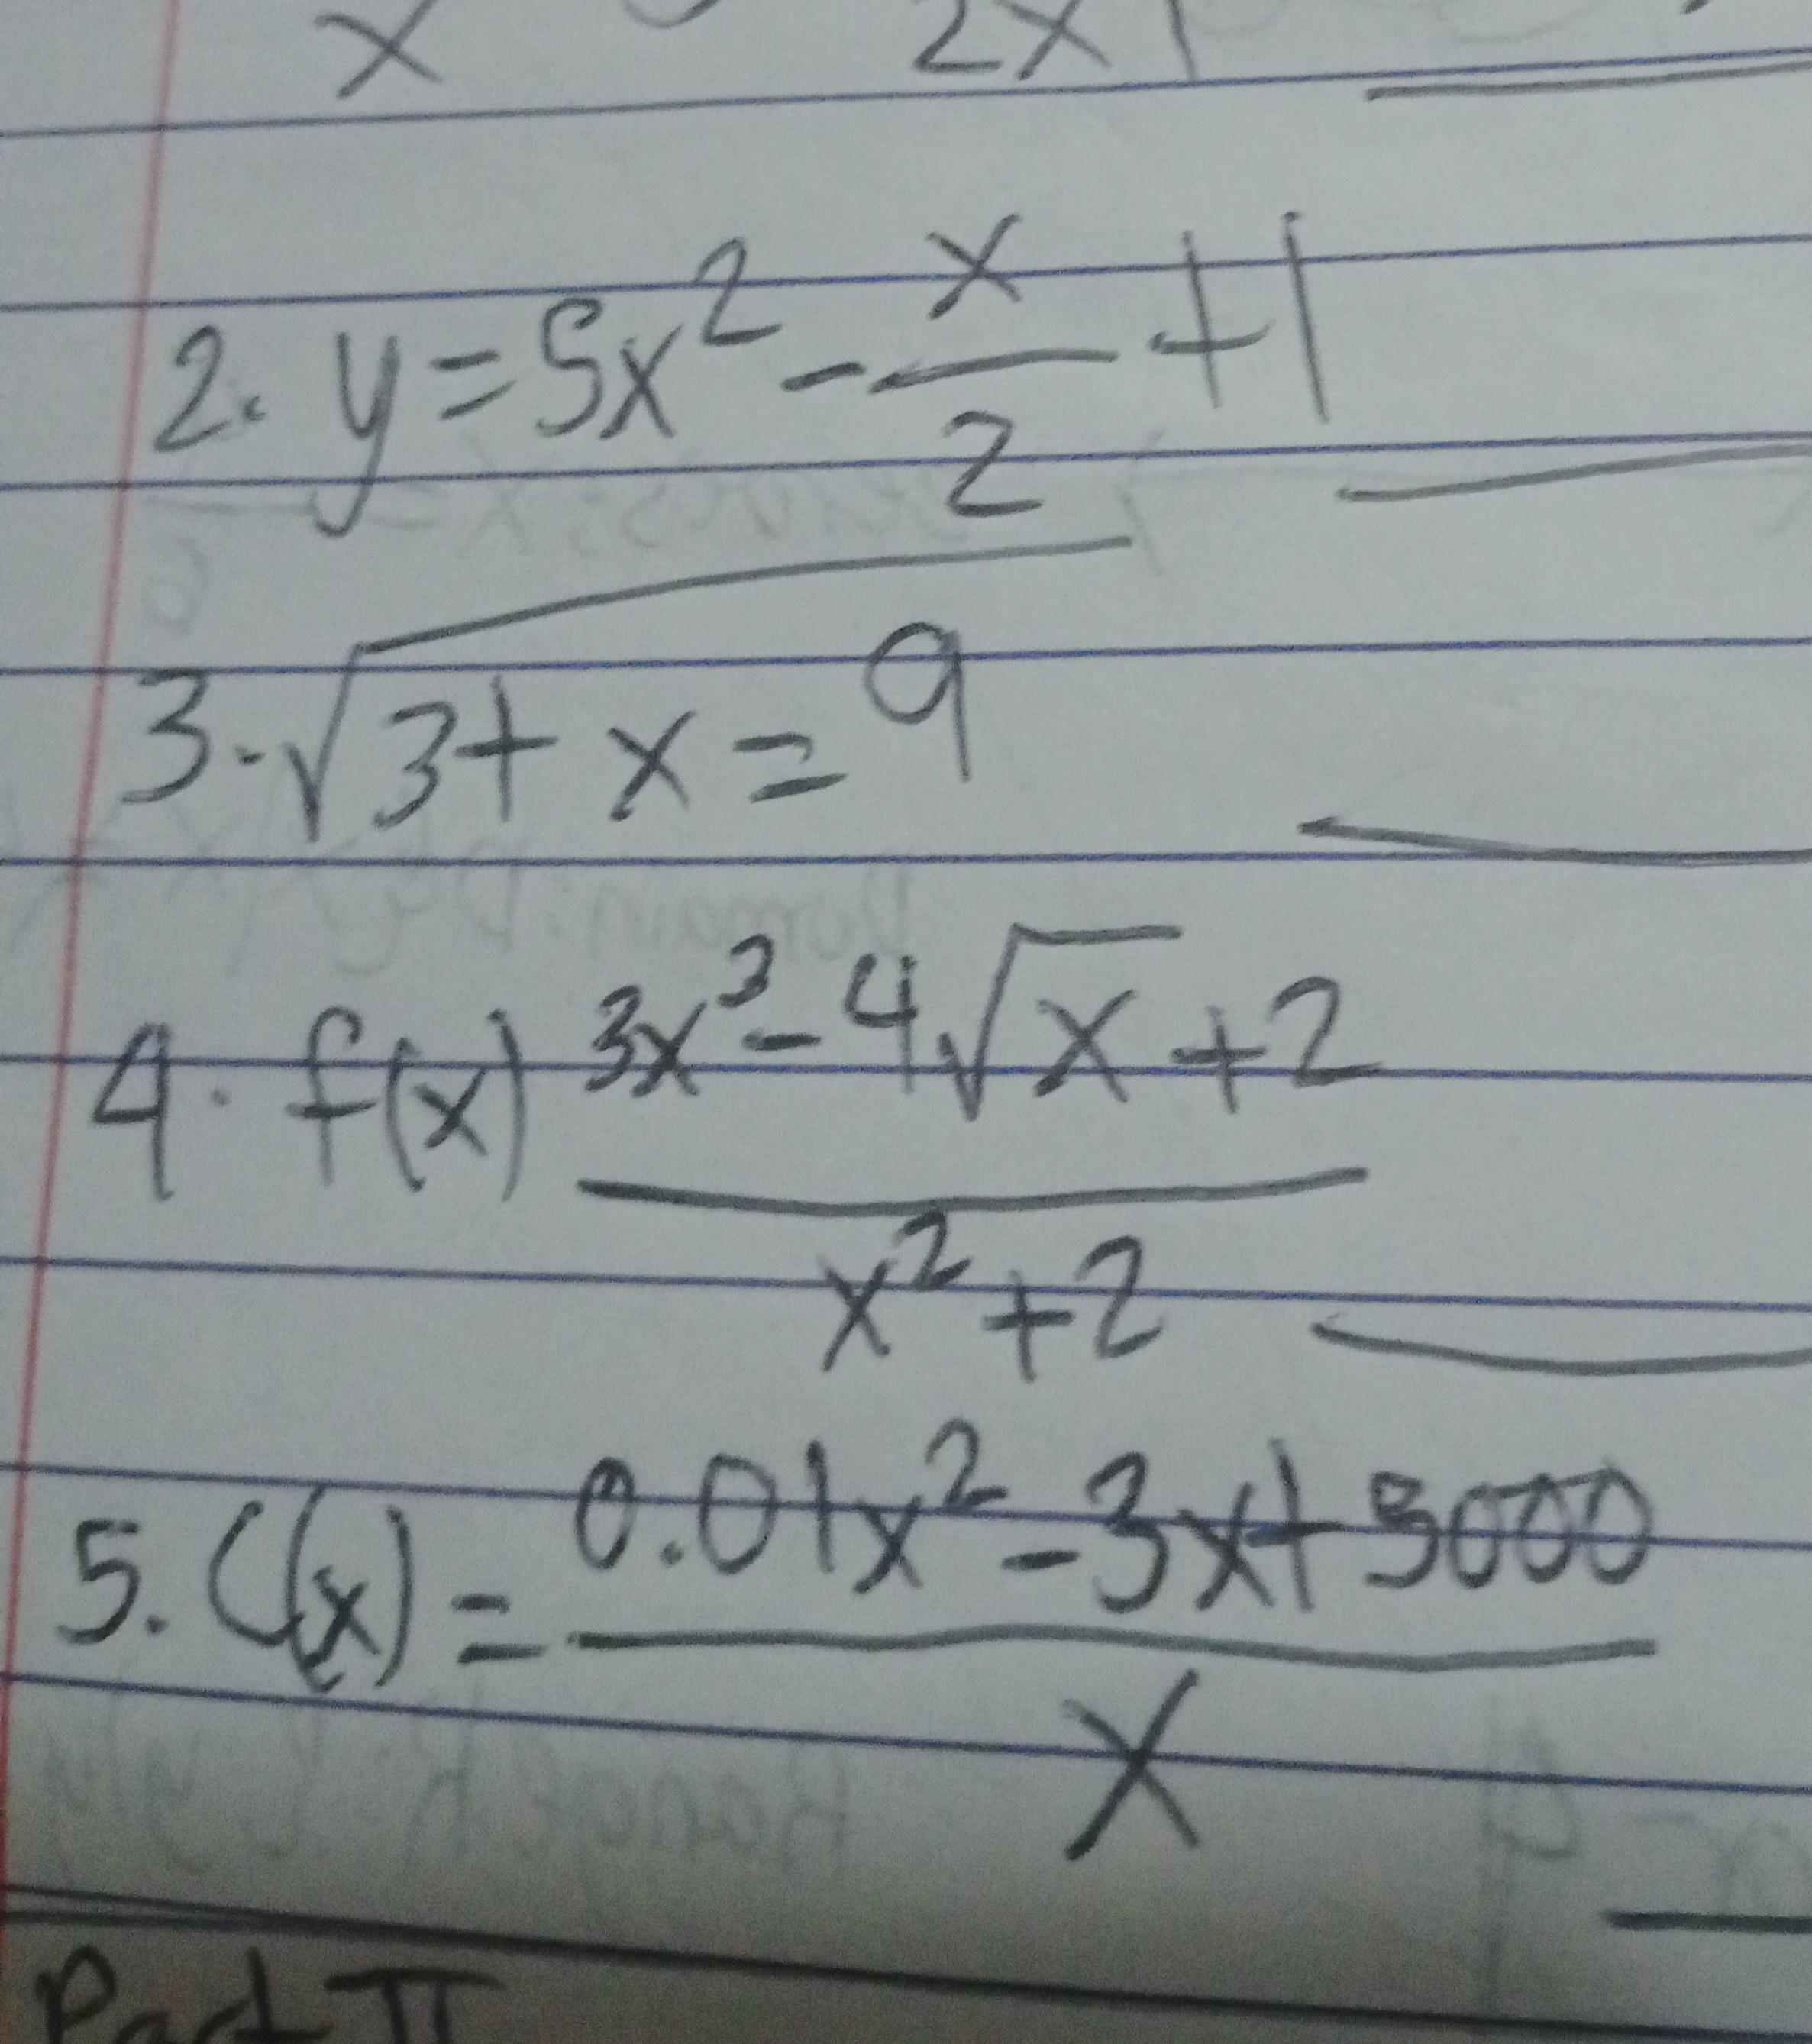 x 2x
2. y = 5x² - x/2 + 1
3. √(3 + x = 9)
4. f(x) (3x³ - 4√x + 2)/(x² + 2)
5. C(x) = (0.01x² - 3x + 5000)/x
Part II